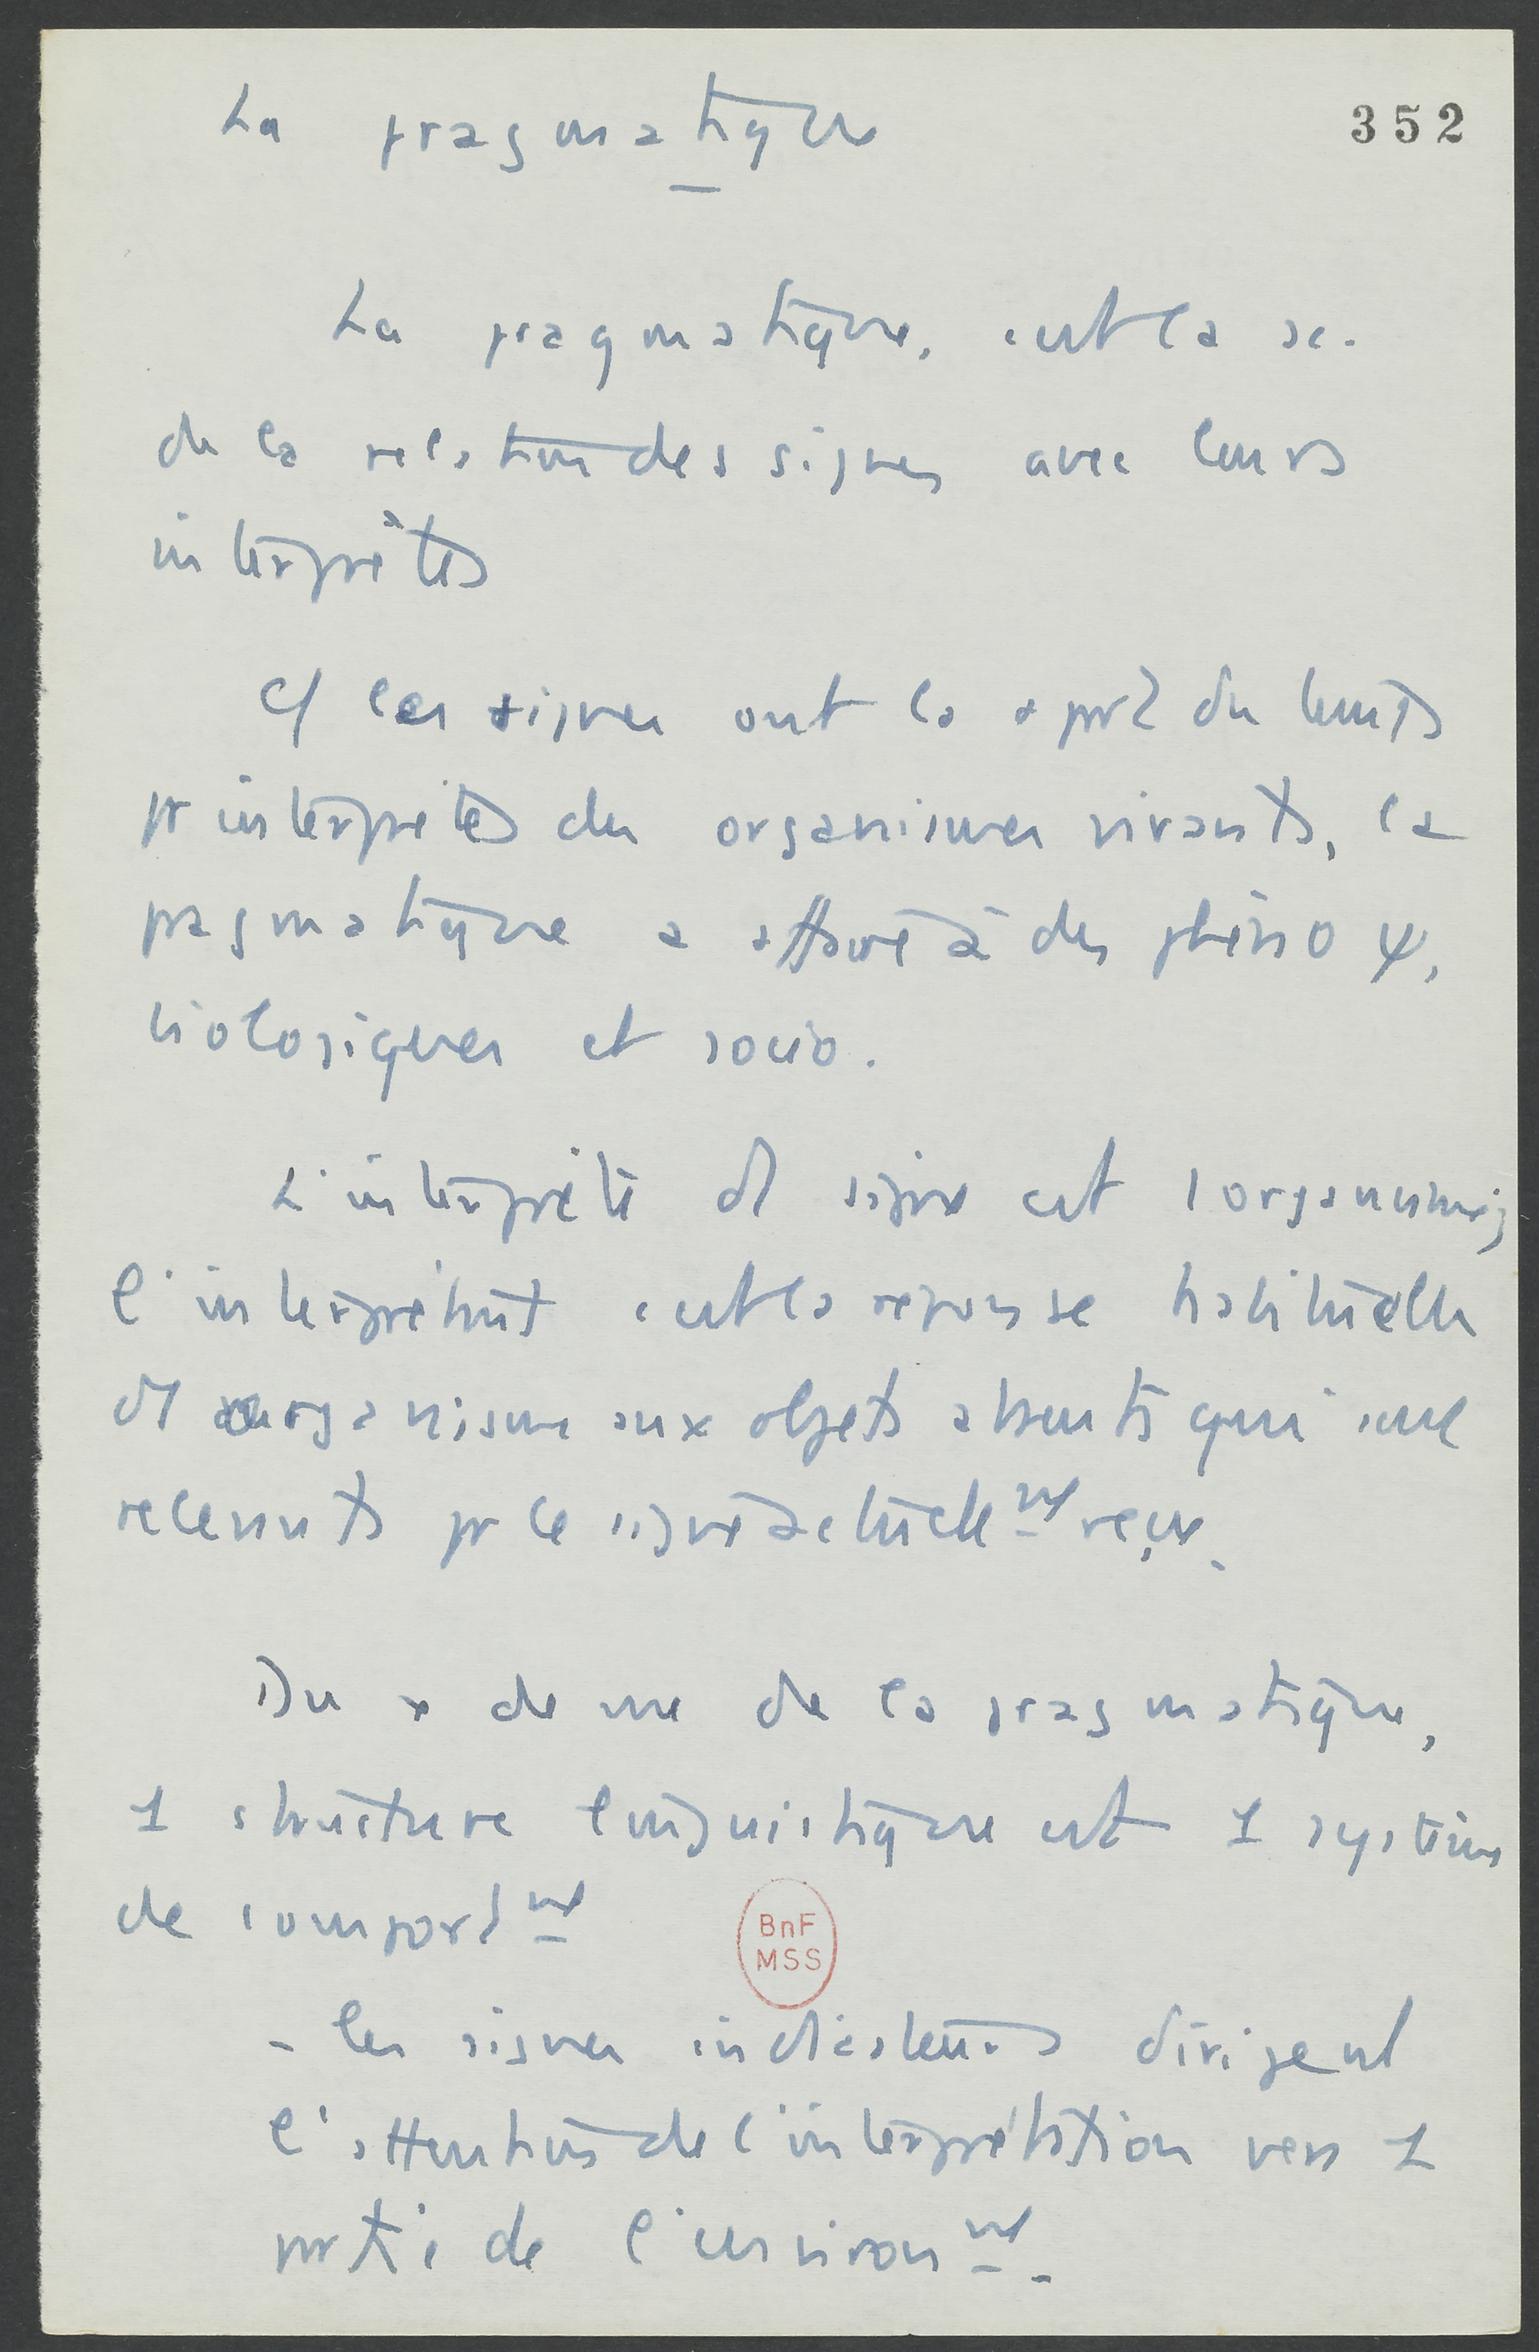 La pragmatique
352
La pragmatique, c'est la sc.
de la relation des signes avec leurs
interprètes
C/ les signes ont la du temps
pr interprètes des organismes vivants, la
pragmatique a affaire à des phéno ψ,
biologiques et socio.
L'interprète d' signe est l'organisme ;
l'interprétant c'est la réponse habituelle
d' organisme aux objets absents qui sont
pr le signe actuellemt reçu.
Du x de vue de la pragmatique,
1 structure linguistique est 1 système
de comportmt
- les signes indicateurs dirigent
l'attention de l'interprétation vers 1
partie de l'environmt.
BnF
MSS